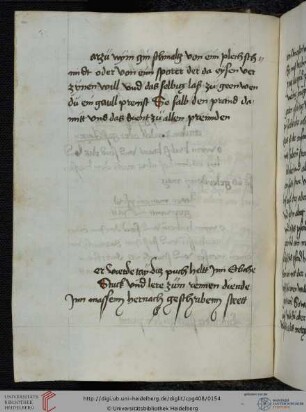 arzü wyın ein schmaltz von ein plechsch
midt oder von eim sporer der da eysen ver
zynen will vnd das selbig laß zu geen wen
du ein gaull prenst So salb den prand da
mitt vnd das dient zu allen prenden
er wurdt das puch hellt Inn
Stuck vnd lere zum rennen diende
Inn massen hernach geschriben stett
UNIVERSITÄTS-
BIBLIOTHEK
HEIDELBERG
http://digi.ub.uni-heidelberg.de/diglit/cpg408/0154
© Universitätsbibliothek Heidelberg